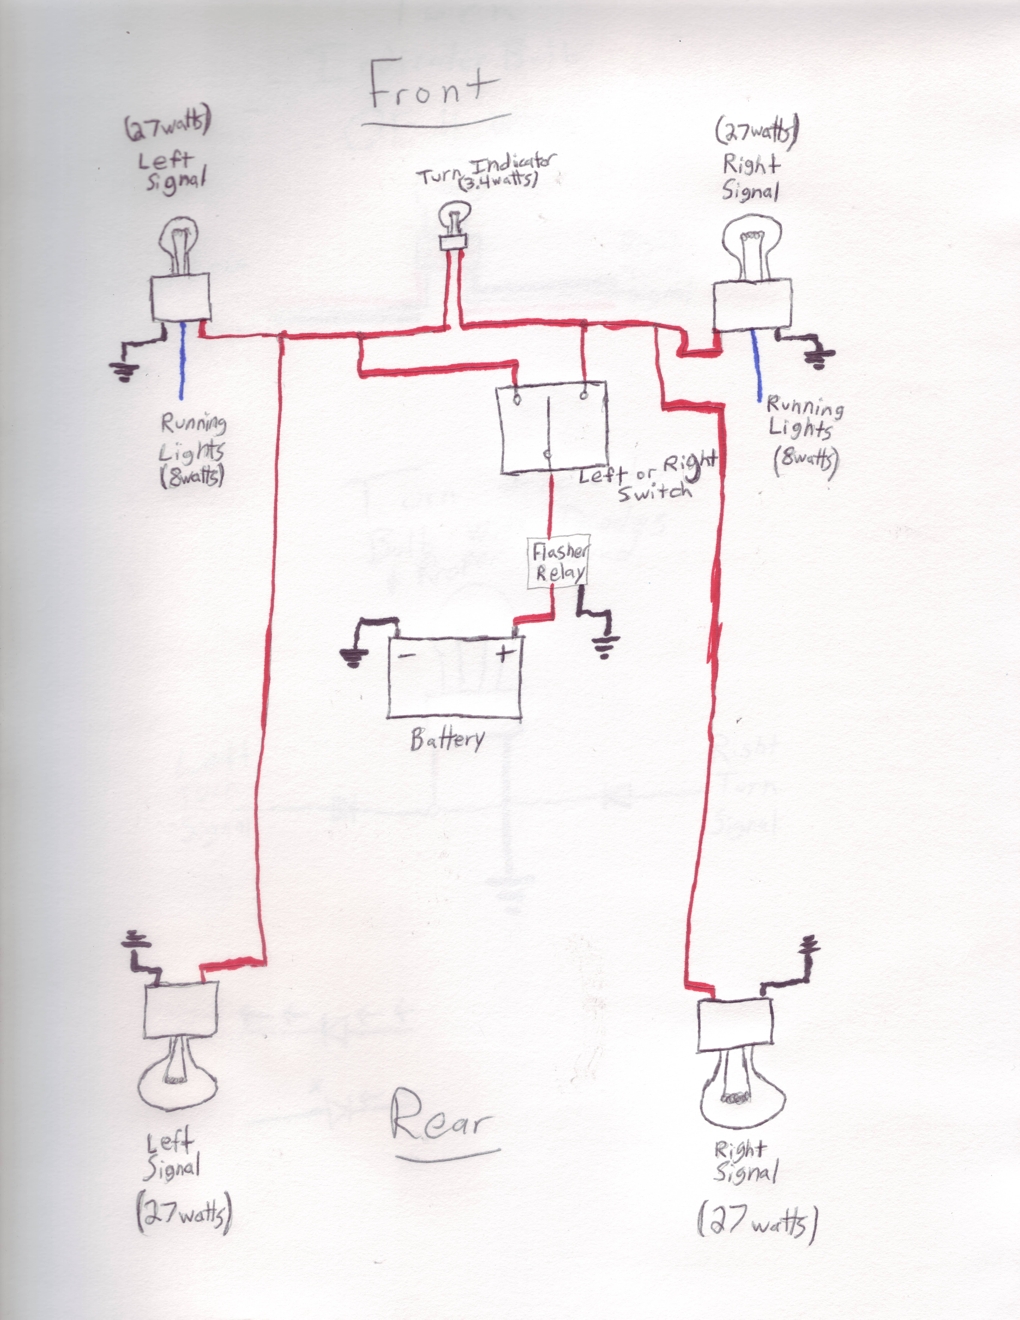 Front
(27watts)
Left
Signal
Turn Indicator
(3.4watts)
(27watts)
Right
Signal
Running
Lights
(8watts)
Running
Lights
(8watts)
Left or Right
Switch
Flasher
Relay
- +
Battery
Rear
Left
Signal
(27watts)
Right
Signal
(27watts)